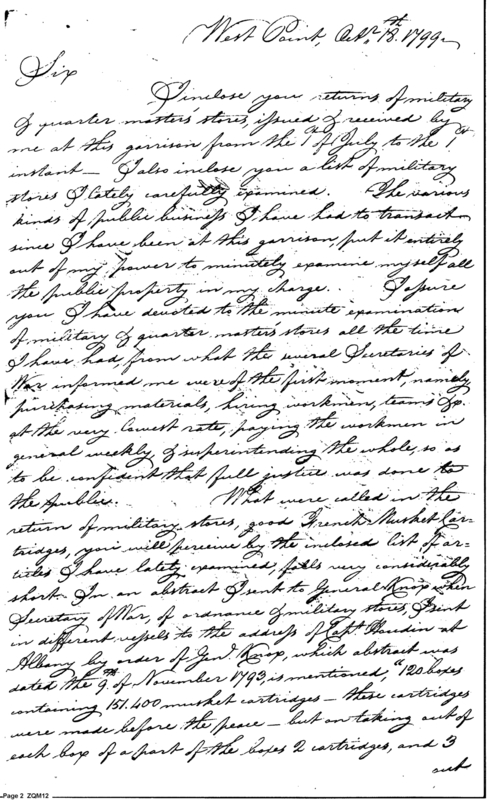 West Point, Octr. 18th. 1799.
Sir
I inclose you returns of military
& quarter masters stores, issued & received by
me at this garrison from the 1st. of July to the 1st
instant — I also inclose you a list of military
stores I lately carefully examined. The various
kinds of public business I have had to transact
since I have been at this garrison, put it entirely
out of my power to minutely examine myself all
the public property in my charge. I assure
you I have devoted to the minute examination
of military & quarter masters stores all the time
I have had, from what the several Secretaries of
War informed me were of the first moment, namely
purchasing materials, hiring workmen, teams &c.
at the very lowest rate, paying the workmen in
general weekly, & superintending the whole, so as
to be confident that full justice was done to
the public. What were called in the
return of military stores, good French Musket Car-
tridges, you will perceive by the inclosed list of ar-
ticles I have lately examined, falls very considerably
short. In an abstract I sent to General Knox when
Secretary of War, of ordnance & military stores, I sent
in different vessels to the address of Capt. Houdin at
Albany by order of Genl. Knox, which abstract was
dated the 9th. of November 1793, is mentioned, "120 boxes
containing 151.400 musket cartridges — these cartridges
were made before the peace — but on taking out of
each box of a part of the boxes 2 cartridges, and 3
out
Page 2 ZQM12